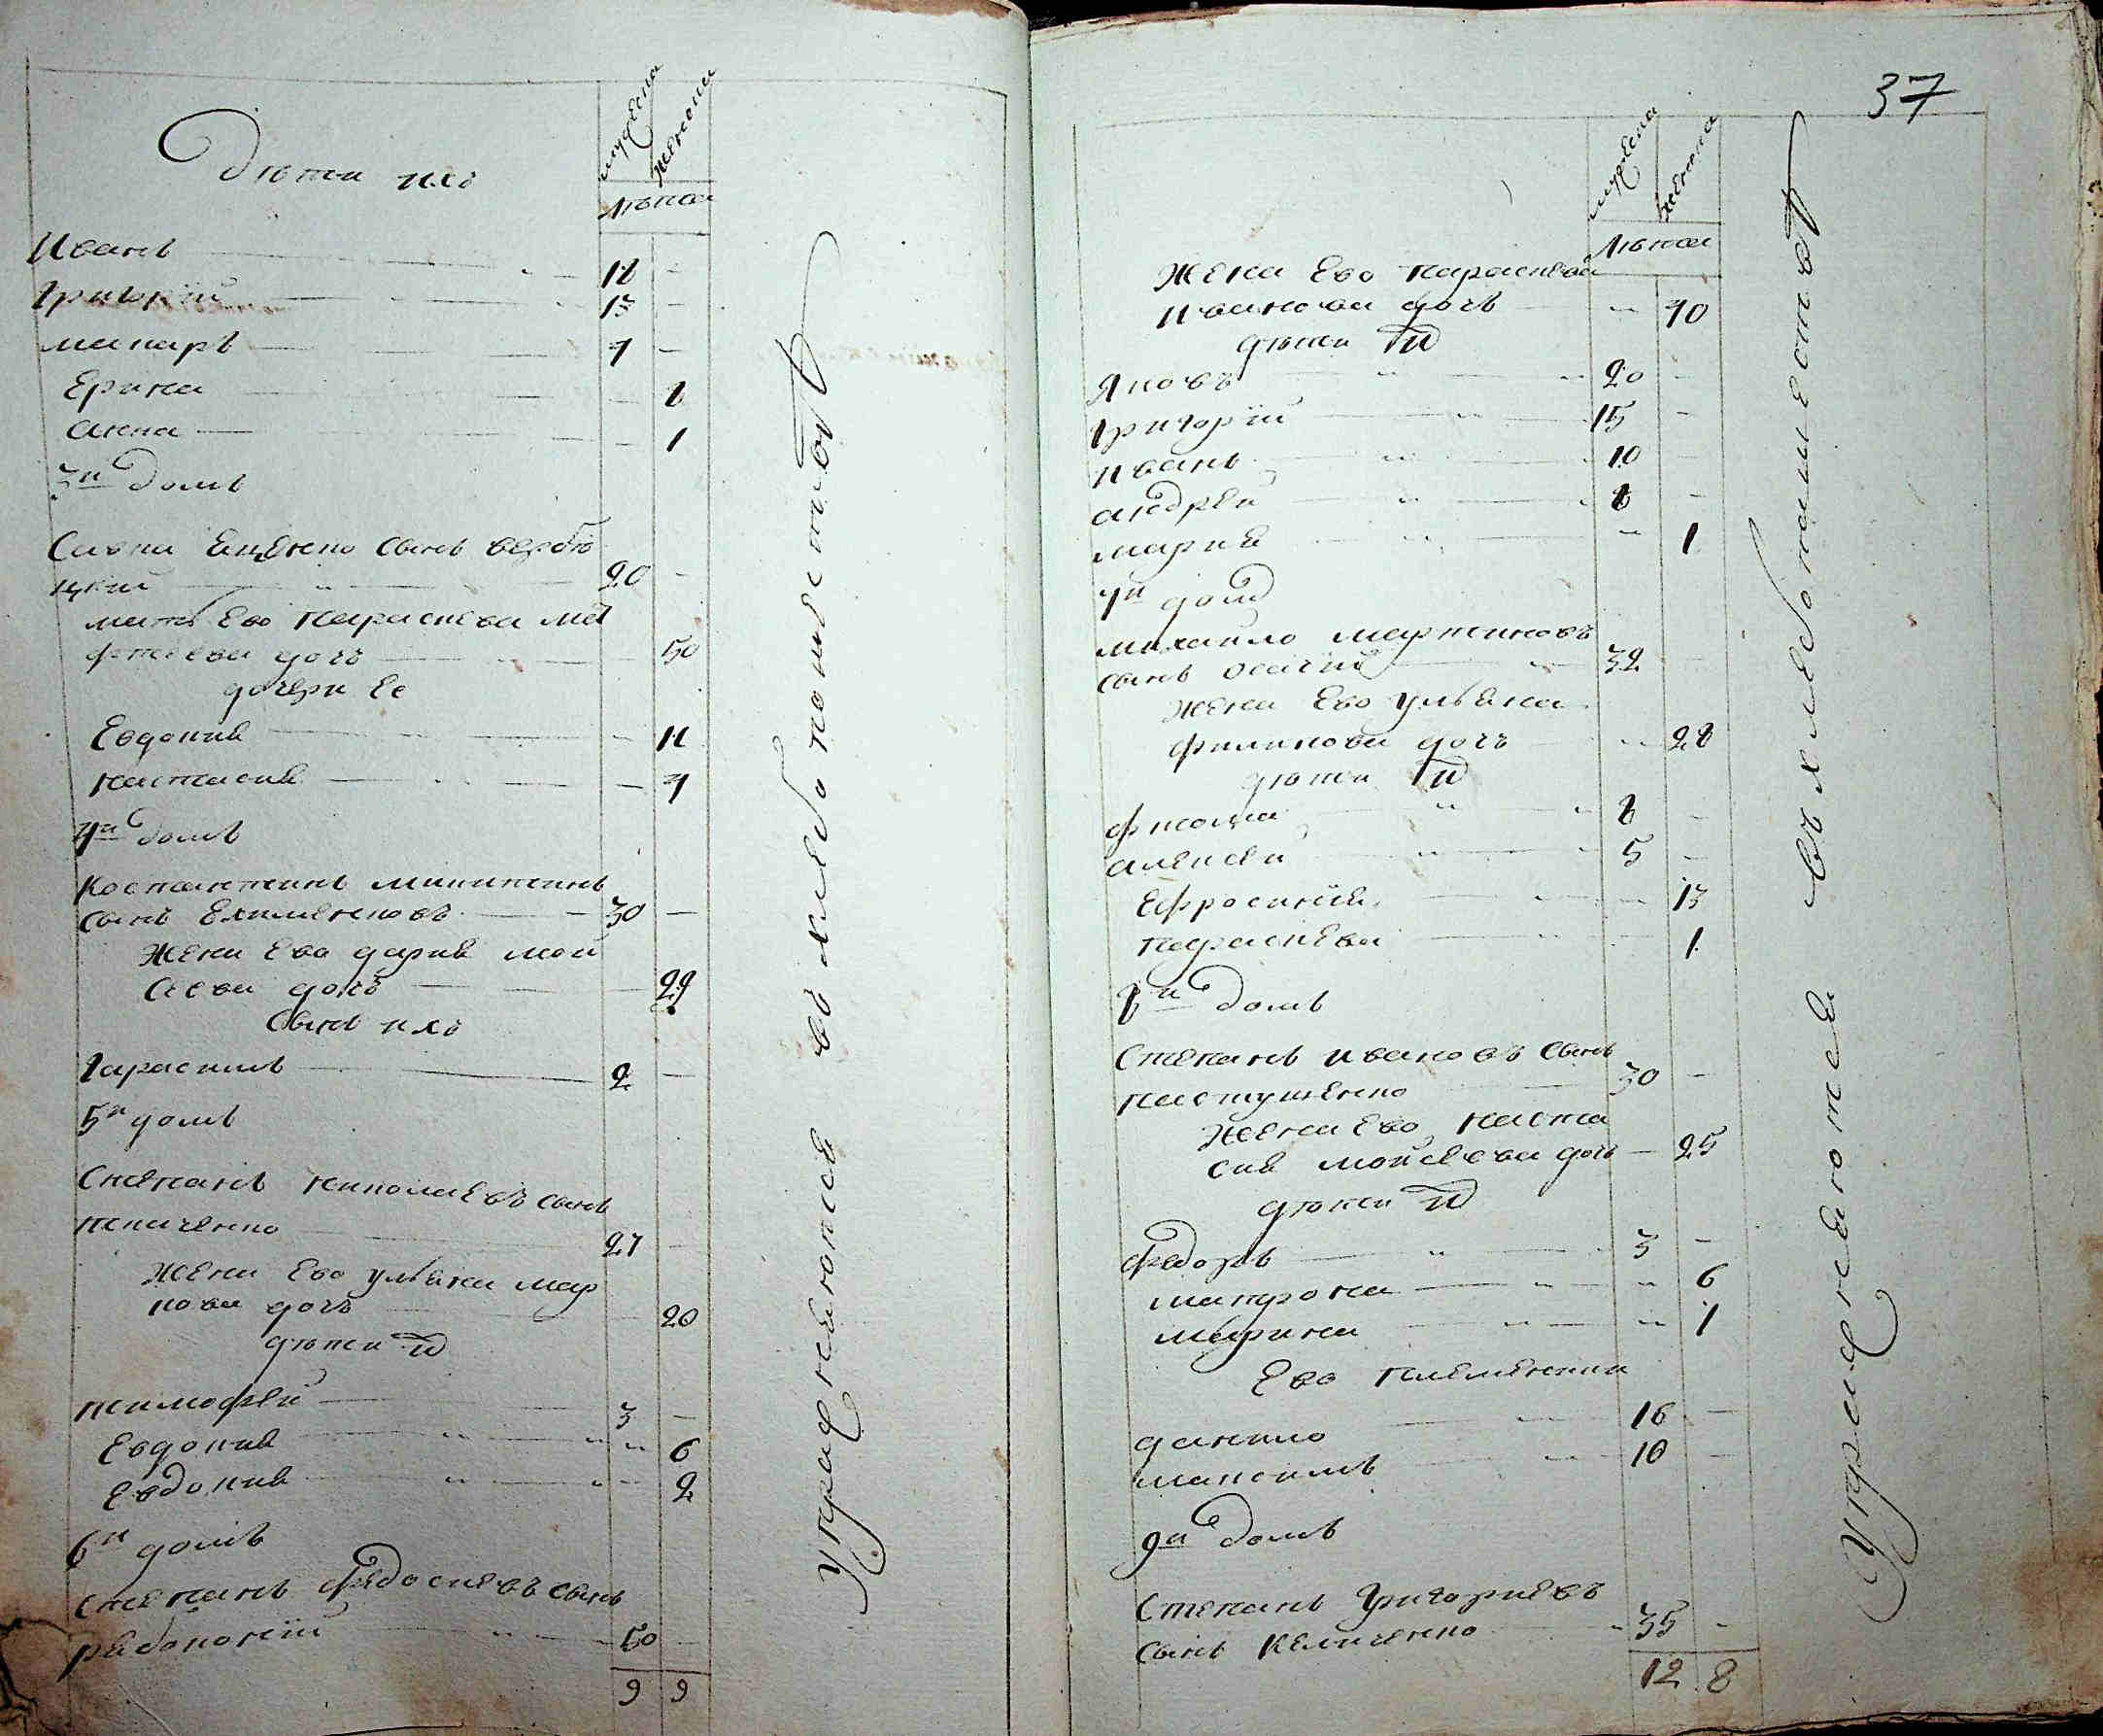 Дѣти ихъ
мужеска
женска
Лѣта
Иванъ 18 -
Григорій 13 -
макаръ 7 -
Ерина - 8
анна - 1
3й домъ
Савка Яценко сынъ вербѣ
цкий 20 -
мать Ево Параскева мат
фѣева дочъ 50
дочери Ее
Евдокия - 11
настасия - 7
4й домъ
Костантинъ микитинъ
сынъ Ехименковъ 30 -
жена Ево дария мои
сѣева дочъ - 29
сынъ ихъ
Гарасимъ 2 -
5й домъ
Степанъ николаевъ сынъ
27 -
жена Ево ульяна мар
кова дочъ 20
дѣти их
тимофей 3 -
Евдокия 6
Евдокия 2
6й домъ
степанъ федосиевъ сынъ
рябоконій 50 -
9 9
упражняются въ хлебопашествѣ
37
мужеска
женска
Лѣта
жена Ево параскева
иванова дочъ 40
дѣти их
Яковъ 20 -
Григорій 15 -
иванъ 10 -
андрей 8 -
мария 1
7й домъ
михайло мартиновъ
сынъ осачий 32
жена Ево ульяна
филипова дочъ 28
дѣти их
фтома 8 -
алексей 5 -
Ефросиния 13
параскева 1
8й домъ
Степанъ ивановъ сынъ
пастушенко 30 -
жена Ево наста
сия мойсеева дочъ 25
дѣти их
федоръ 3 -
матрона 6
марина 1
Ево племянники
данило 16 -
максимъ 10 -
9й домъ
Степанъ Григориевъ
сынъ Келиченко 35 -
12 8
упражняются въ хлебопашествѣ